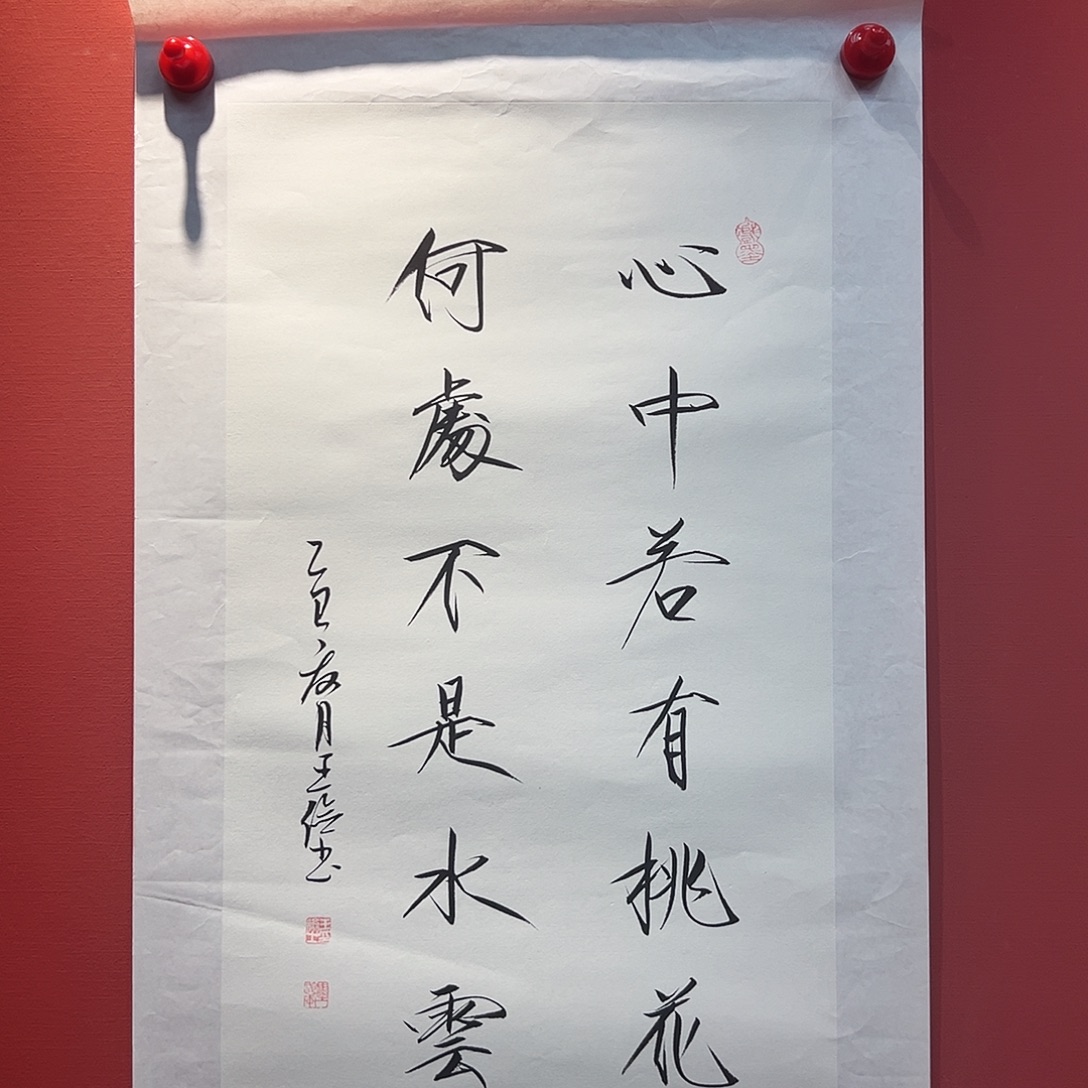 心中若有桃花
何處不是水雲
乙巳夜月王绘书